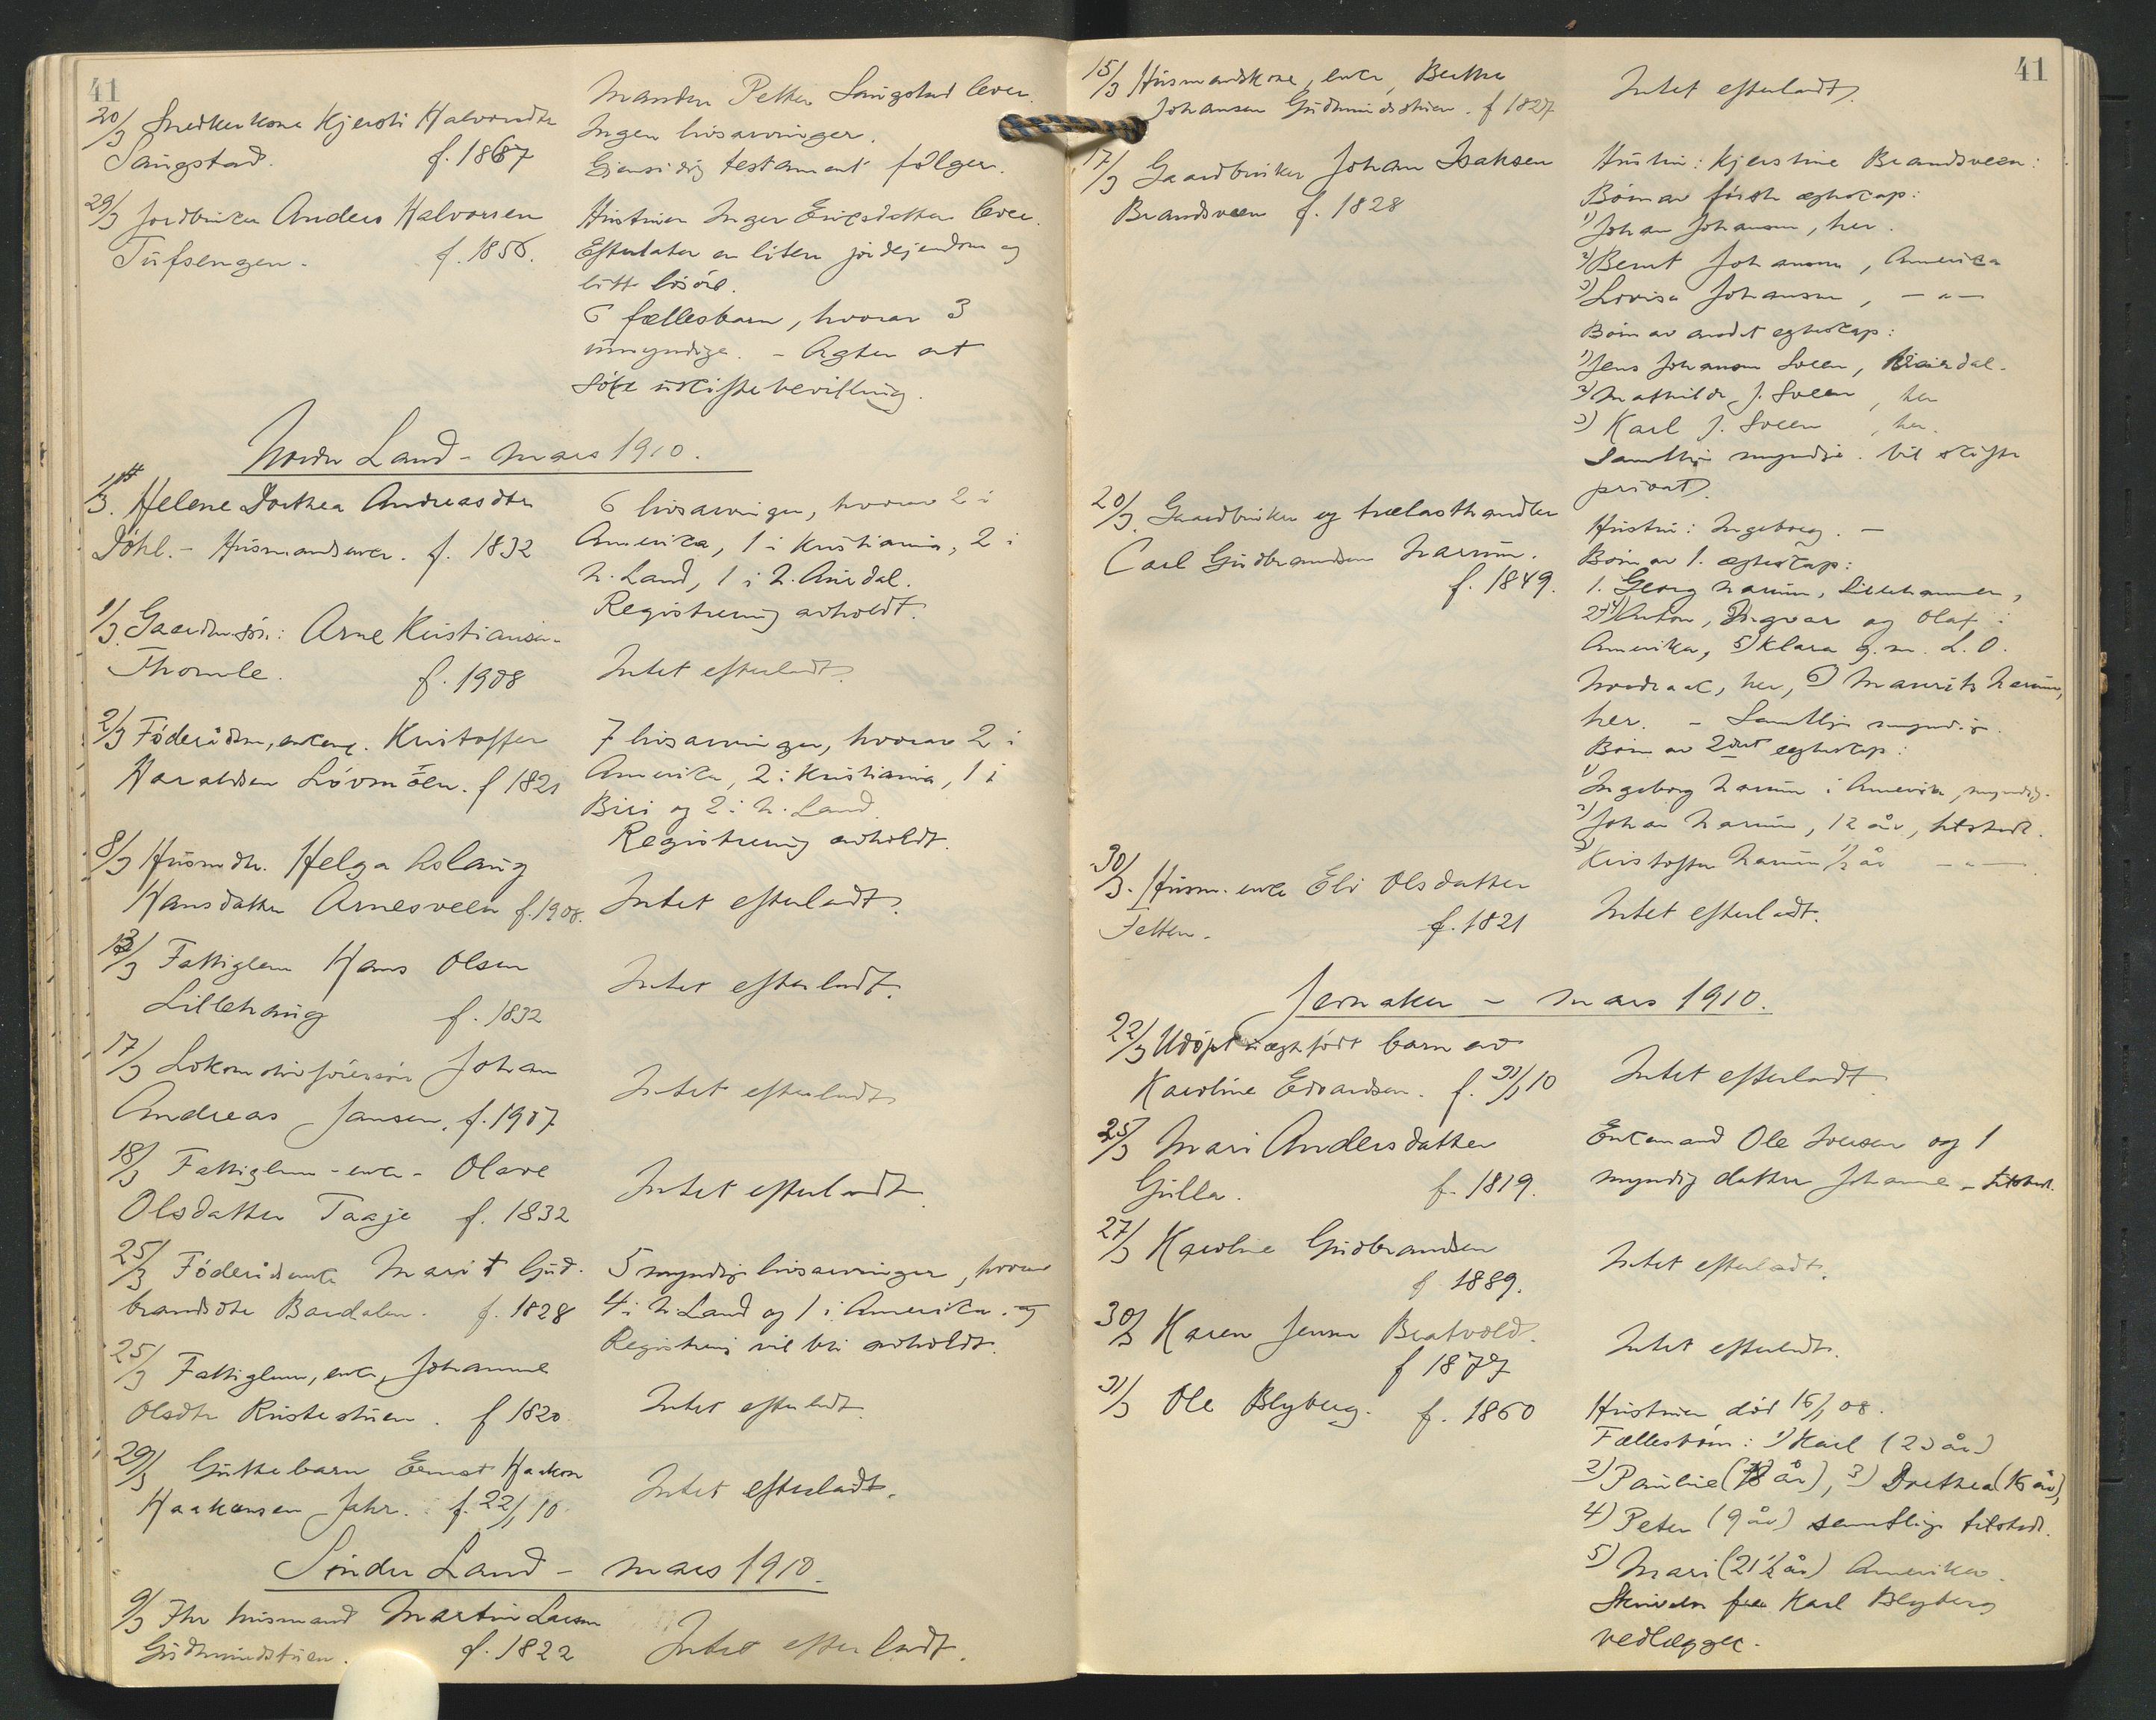 41
20/3 Snedkerkone Kjersti Halvorsdtr
Saugstad. f. 1867
Manden Petter Saugstad lever.
Ingen livsarvinger.
Gjensidig testament følger.
29/3 Jordbruker Anders Halvorsen
Tufsengen. f. 1856.
Hustruen Inger Ericsdatter lever.
Efterlater en liten jordejendom og
litt løsøre.
6 fællesbarn, hvorav 3
umyndige. - Agter at
søke uskiftebevilling.
Nordre Land - mars 1910.
1/3. Helene Dorthea Andreasdtr
Døhl. - Husmandsenke. f. 1832
6 livsarvinger, hvorav 2 i
Amerika, 1 i Kristiania, 2 i
N. Land, 1 i N. Aurdal.
Registrering avholdt.
1/3 Gaardm.søn: Arne Kristiansen
Thomle. f. 1908
Intet efterladt.
2/3 Føderådsm, enkem. Kristoffer
Haraldsen Løvmoen. f 1821
7 livsarvinger, hvorav 2 i
Amerika, 2 i Kristiania, 1 i
Biri og 2 i N. Land.
Registrering avholdt.
8/3 Husmdtr. Helga Aslaug
Hansdatter Arnesveen f. 1908.
Intet efterladt.
13/3 Fattiglem Hans Olsen
Lillehaug f. 1832
Intet efterladt.
17/3 Lokomotivførersøn Johan
Andreas Jansen, f. 1907
Intet efterladt
18/3 Fattiglem - enke - Olave
Olsdatter Taaje f. 1832
Intet efterladt.
25/3 Føderådsenke Marit Gud-
brandsdtr Bardalen. f. 1828
5 myndige livsarvinger, hvorav
4 i N. Land og 1 i Amerika.
Registrering vil bli avholdt.
25/3 Fattiglem, enke, Johanne
Olsdtr Rustestuen. f 1820
Intet efterladt.
29/3 Guttebarn Ernst Haakon
Haakensen Jahr. f. 22/1 10.
Intet efterladt.
Søndre Land - mars 1910.
9/3 Fhv husmand Martin Larsen
Gudmundstuen. f. 1822
Intet efterladt.
41
15/3 Husmandskone, enke, Berthe
Johansen Gudmundsstuen. f 1827
Intet efterladt.
17/3 Gaardbruker Johan Isaksen
Brandsveen f. 1828
Hustru: Kjerstine Brandsveen:
Børn av første egteskap:
1) Johan Johansen, her.
2) Bernt Johansen, Amerika
3) Lovisa Johansen, - " -
Børn av andet egteskap:
1) Jens Johansen Sveen,
2) Mathilde J. Sveen, her
3) Karl J. Sveen, her.
Samtlige myndige. Vil skifte
privat.
20/3 Gaardbruker og trælasthandler
Carl Gudbrandsen Narum.
f. 1849.
Hustru: Ingeborg. -
Børn av 1. egteskap:
1. Georg Narum, Lillehammer,
2-4) Anton, Ingvar og Olaf i
Amerika, 5) Klara g.m. L. O.
Nordraak, her, 6) Maurits Narum,
her. - Samtlige myndige.
Børn av 2det egteskap:
1) Ingeborg Narum i Amerika, myndig.
2) Johan Narum, 12 år, tilstede.
3) Kristoffer Narum 1/2 år - " -
30/3. Husm. enke Eli Olsdatter
Fetten. f. 1821
Intet efterladt.
Jevnaker - mars 1910.
22/3 Udøpt uægtefødt barn av
Karoline Edvardsen. f. 10
Intet efterladt
25/3 Mari Andersdatter
Gulla. f. 1819.
Enkemand Ole Iversen og 1
myndig datter Johanne - tilstede.
27/3 Karoline Gudbrandsen
f 1889.
Intet efterladt.
30/3 Karen Jensen Bratvold.
f 1877
Intet efterladt.
31/3 Ole Blyberg. f. 1860
Hustruen død 16/1 08.
Fællesbørn: 1) Karl (23 år)
2) Pauline (18 år), 3) Dorthea (16 år),
4) Peter (9 år) samtlige tilstede.
5) Mari (21 1/2 år) Amerika.
Skrivelse fra Karl Blyberg
vedlægges.